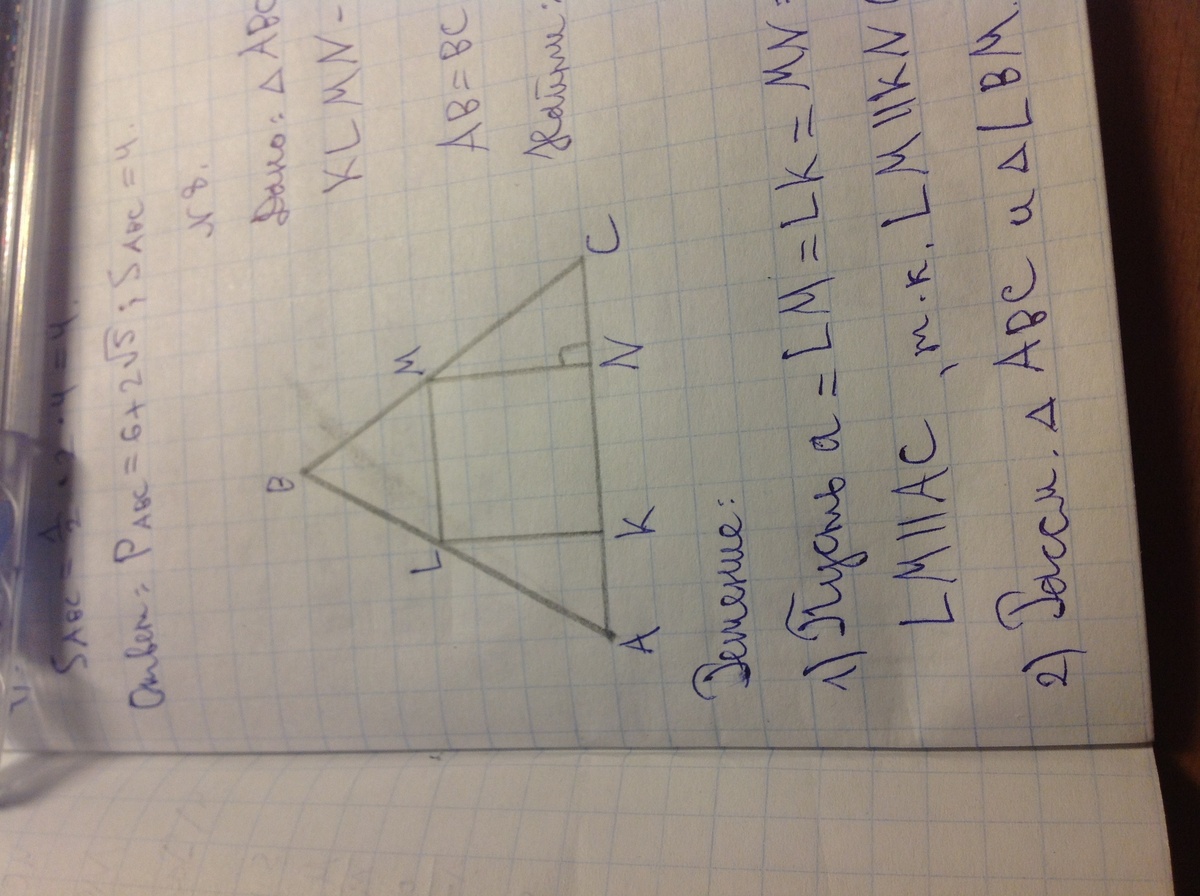 S ABC = 1/2 · 2 · 4 = 4.
Ответ: P ABC = 6 + 2√5 ; S ABC = 4.
N 8.
Дано: △ ABC
KLMN -
AB = BC
Найти:
B
L
M
A
K
N
C
Решение:
1) Пусть a = LM = LK = MN =
LM || AC, т.к. LM || KN (
2) Рассм. △ ABC и △ LBM.